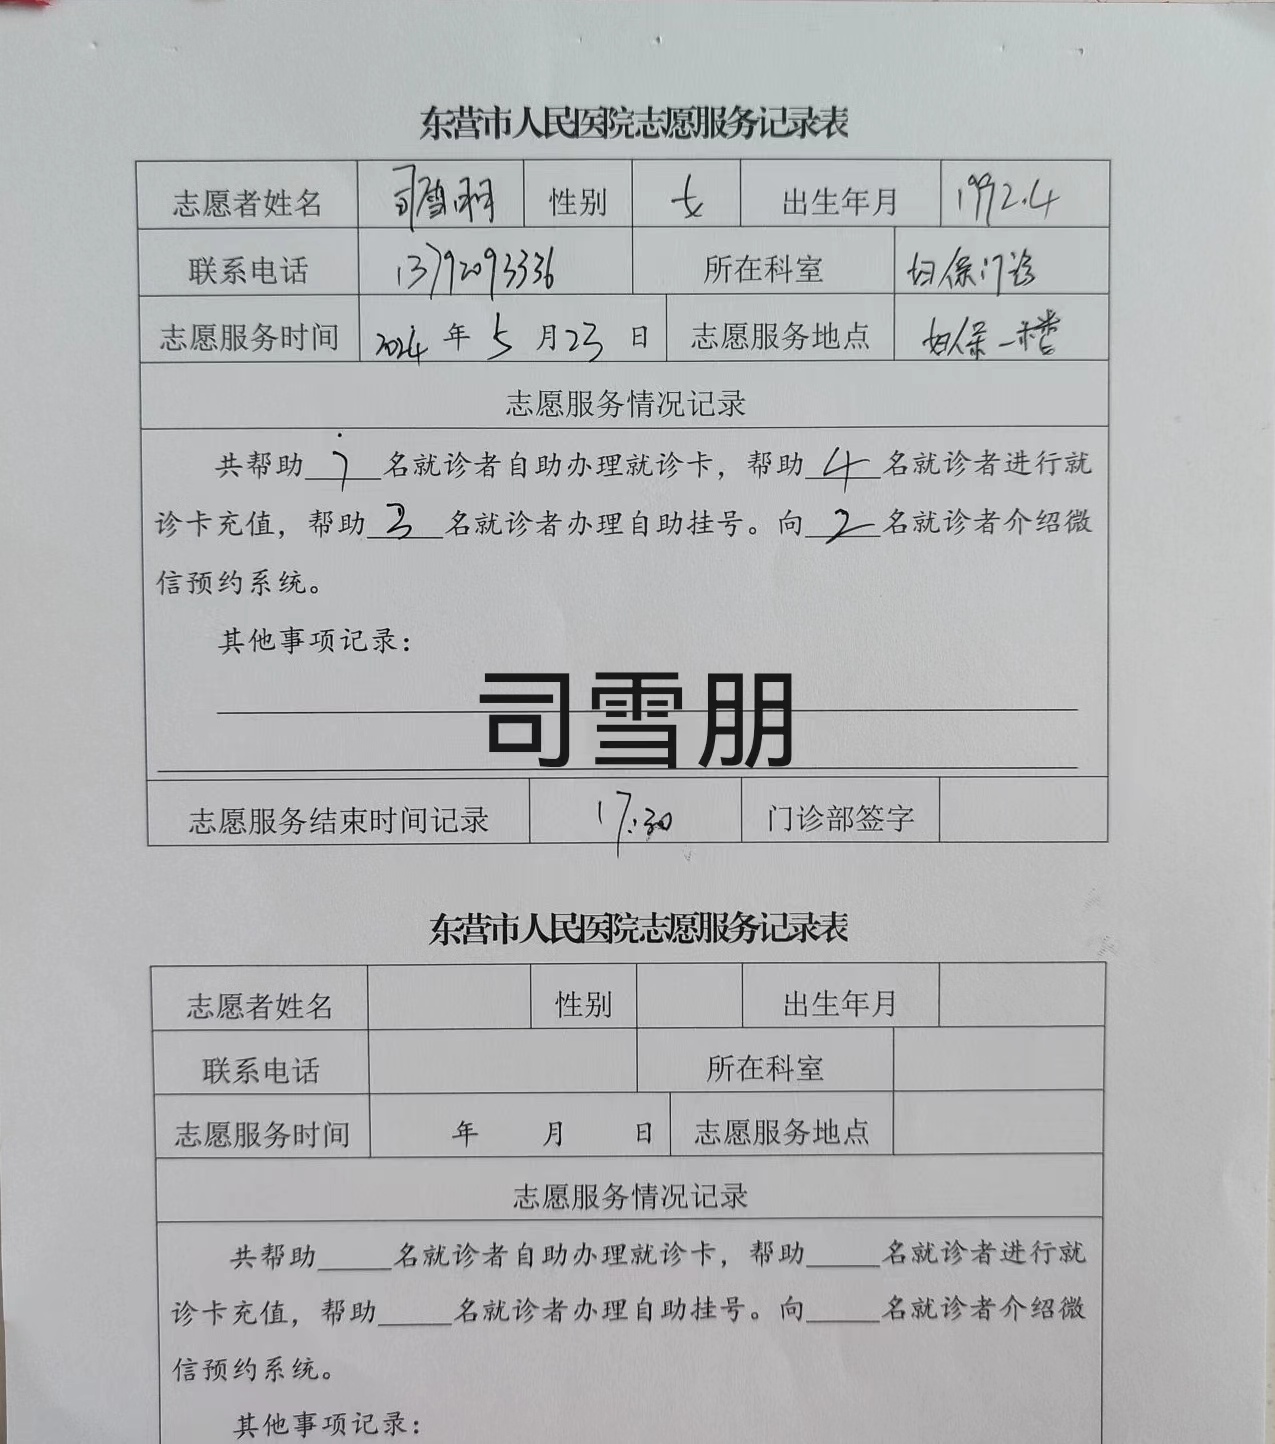 东营市人民医院志愿服务记录表
志愿者姓名 司雪朋 性别 女 出生年月 1992.4
联系电话 13792093336 所在科室 妇保门诊
志愿服务时间 2024 年 5 月 23 日 志愿服务地点 妇保一楼
志愿服务情况记录
共帮助 名就诊者自助办理就诊卡，帮助 4 名就诊者进行就
诊卡充值，帮助 3 名就诊者办理自助挂号。向 2 名就诊者介绍微
信预约系统。
其他事项记录：
司雪朋
志愿服务结束时间记录 17:30 门诊部签字
东营市人民医院志愿服务记录表
志愿者姓名 性别 出生年月
联系电话 所在科室
志愿服务时间 年 月 日 志愿服务地点
志愿服务情况记录
共帮助_____名就诊者自助办理就诊卡，帮助_____名就诊者进行就
诊卡充值，帮助_____名就诊者办理自助挂号。向_____名就诊者介绍微
信预约系统。
其他事项记录：